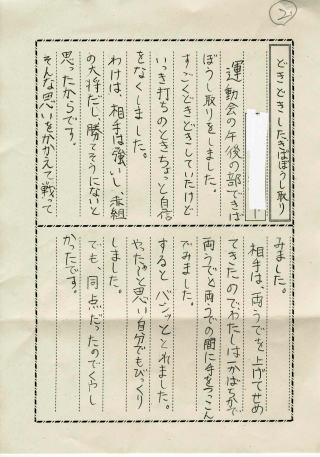 2
どきどきしたきばぼうし取り
運動会の午後の部できば
ぼうし取りをしました。
すごくどきどきしていたけど
いっき打ちのときちょっと自信
をなくしました。
わけは、相手は強いし、赤組
の大将だし、勝てそうにないと
思ったからです。
そんな思いをかかえて戦って
みました。
相手は、両うでを上げてせめ
てきたのでわたしは一かばちかで
両うでと両うでの間に手をつっこん
でみました。
するとバシッととれました。
やったあと思い自分でもびっくり
しました。
でも、同点だったのでくやし
かったです。